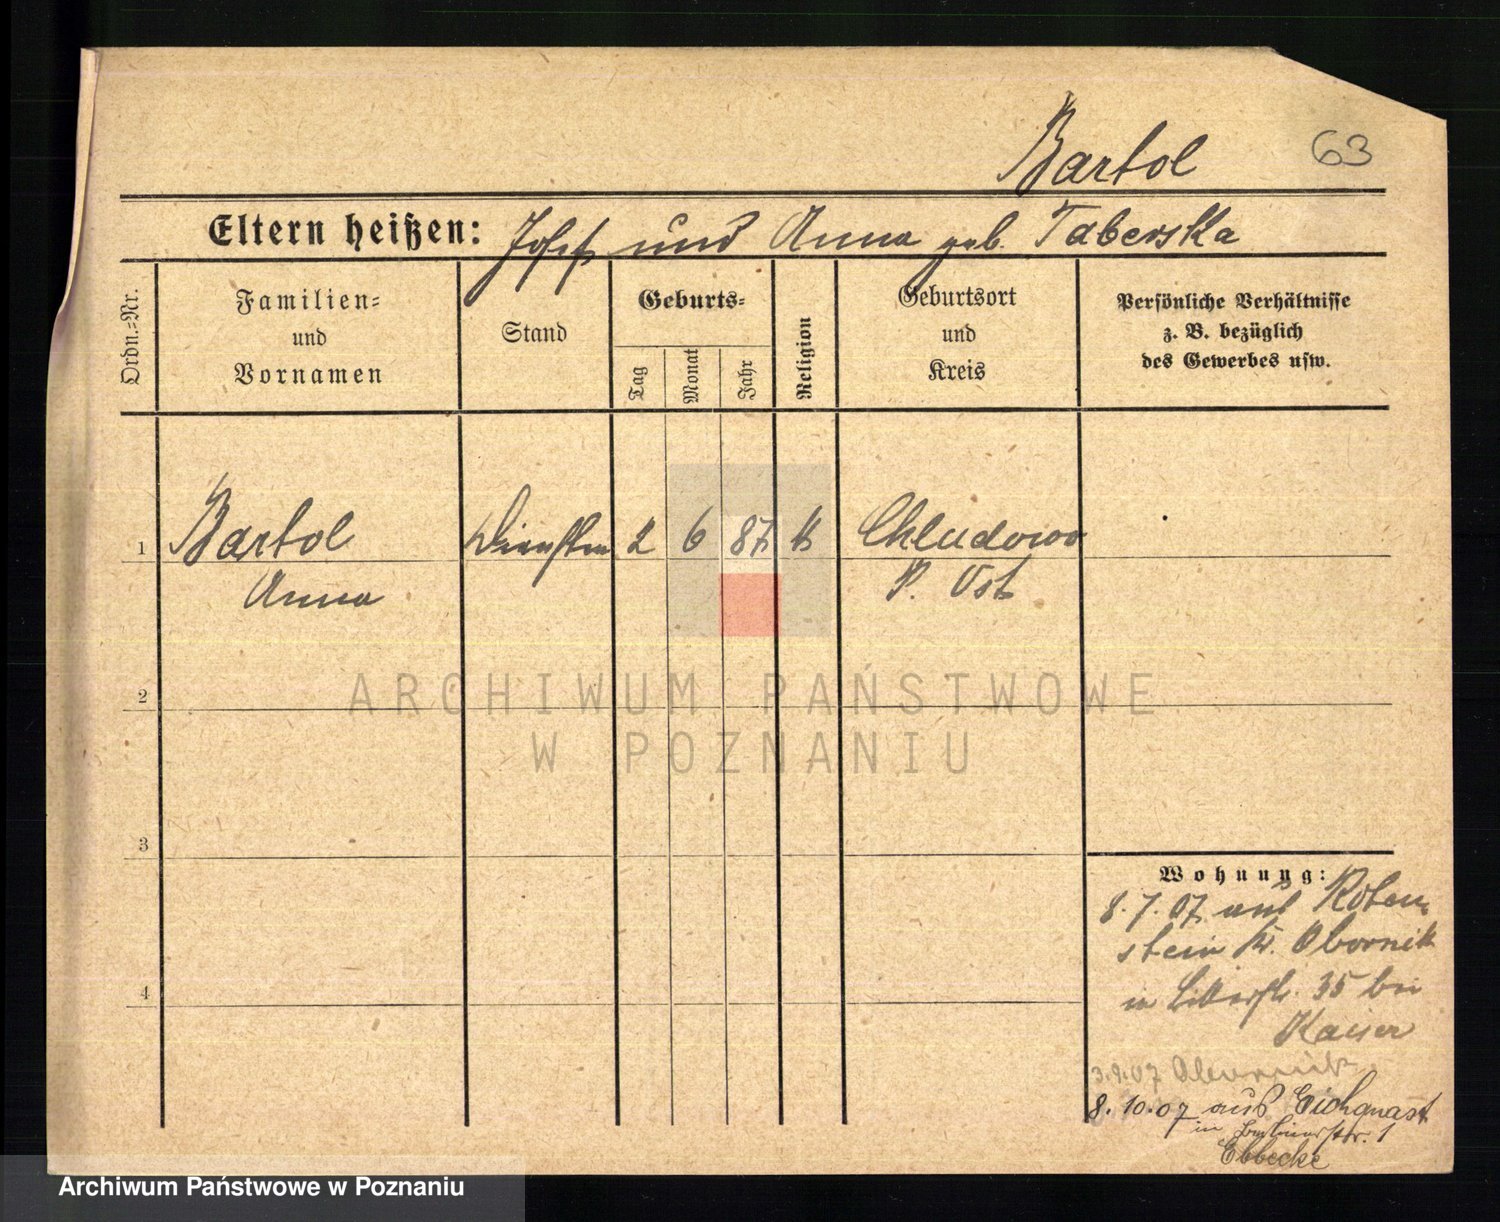 Bartol
63
Eltern heißen: Josef und Anna geb. Taberska
Ordn.=Nr.
Familien=
und
Vornamen
Stand
Geburts=
Tag
Monat
Jahr
Religion
Geburtsort
und
Kreis
Persönliche Verhältnisse
z. B. bezüglich
des Gewerbes usw.
1 Bartol 2 6 87 k Chludowo
Anna P. Ost
2
3
4
ARCHIWUM PAŃSTWOWE
W POZNANIU
Wohnung:
8.7.07 aus Roten
stein Kr. Obornik
in 35 bei
Kaiser
3.9.07 Obornik
8.10.07 aus Eichquast
in Berlinerstr. 1
Ebbecke
Archiwum Państwowe w Poznaniu